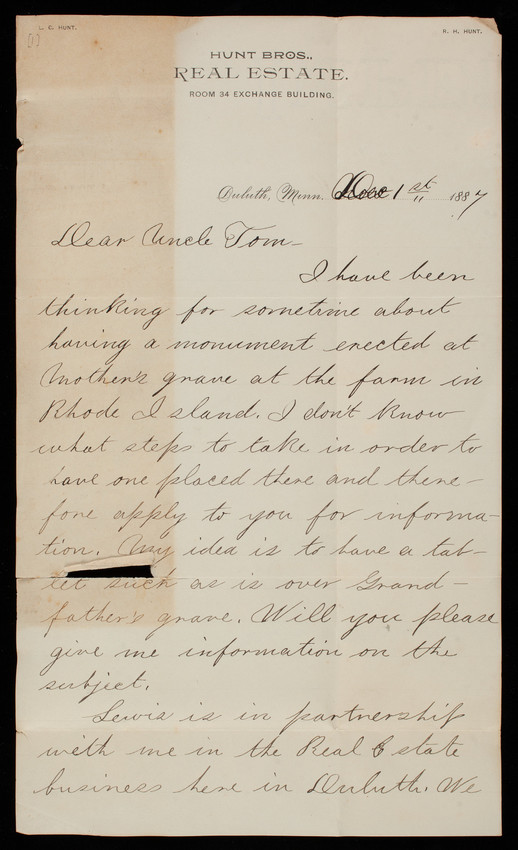 L. C. HUNT.
R. H. HUNT.
(1)
HUNT BROS.,
REAL ESTATE.
ROOM 34 EXCHANGE BUILDING.
Duluth, Minn. Dec 1st 1887
Dear Uncle Tom—
I have been
thinking for sometime about
having a monument erected at
Mother's grave at the farm in
Rhode Island. I don't know
what steps to take in order to
have one placed there and there-
fore apply to you for informa-
tion. My idea is to have a tab-
let such as is over Grand-
father's grave. Will you please
give me information on the
subject.
Lewis is in partnership
with me in the Real Estate
business here in Duluth. We